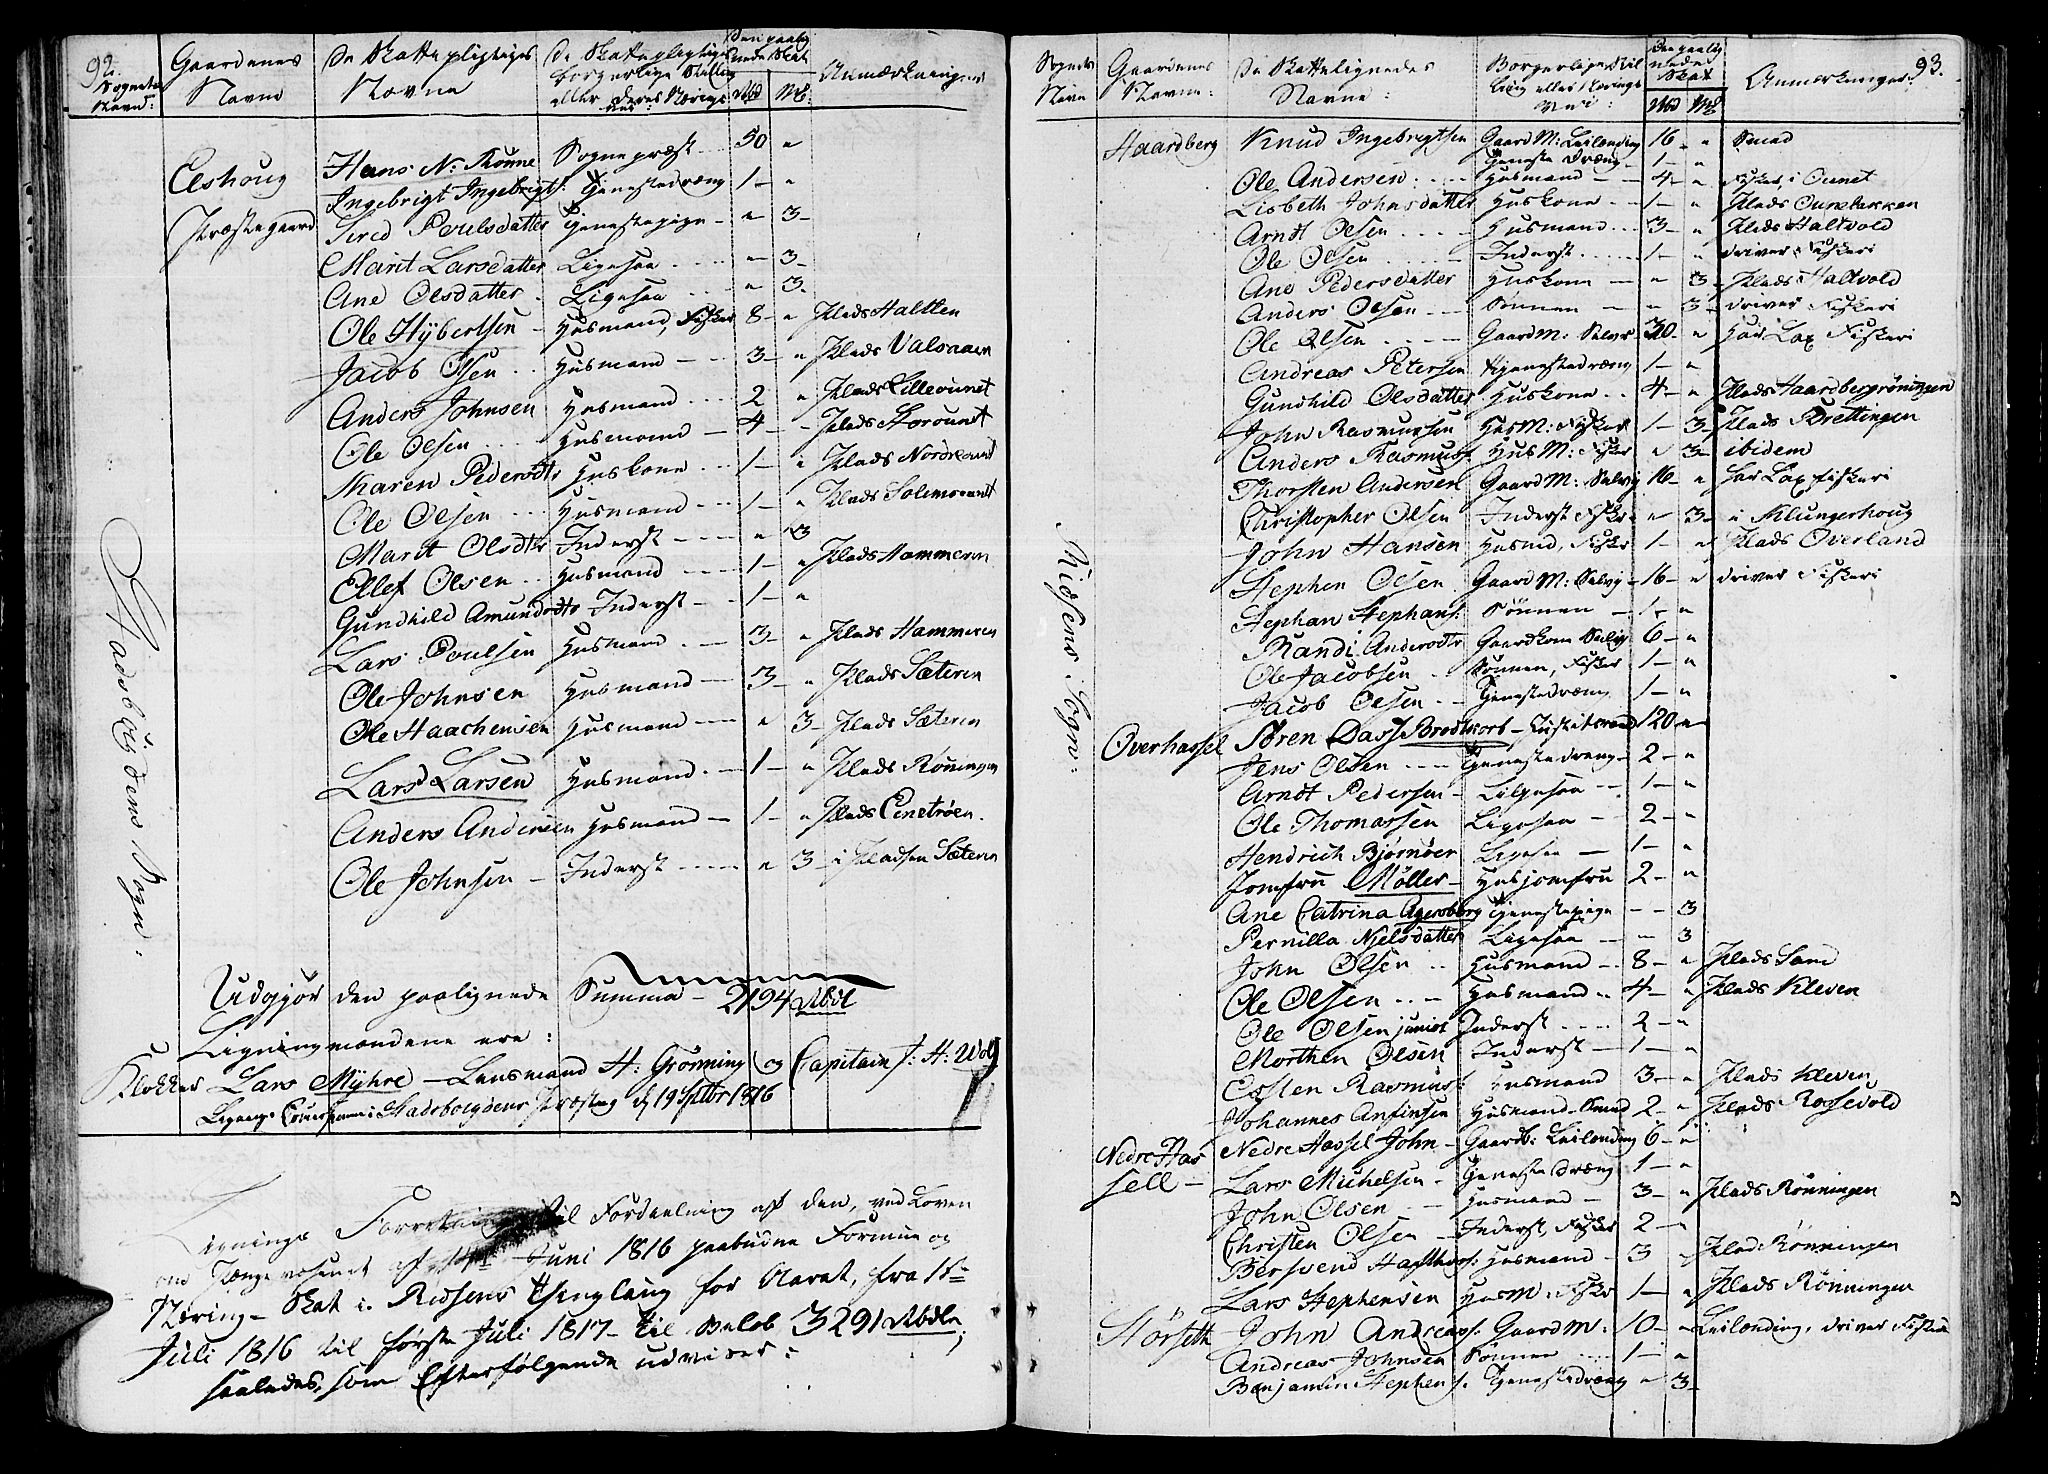 92.
Sognets Navn:
Gaardenes Navne
De Skattepligtiges Navne
De Skattepligtiges borgerlige Stilling eller deres Nærings
Den paalignede Skat
Rbd Mk
Anmærkninger
Stadsbøjgdens Sogn:
Elshoug Præstegaard
Hans N: Rönne Sognepræst 50 "
Ingebrigt Ingebrigts: Tjenestedræng 1 — "
Sired Poulsdatter Tjenestepige — " 3 —
Marit Larsdatter Ligesaa — " 3 —
Ane Olsdatter Ligesaa — " 3 —
Ole Hÿbertsen — Husmand, Fisker 8 — " Plads Haltten
Jacob Olsen Husmand — 3 — " Plads Valsaaen
Anders Johnsen Husmand 2 " Plads Lilleounet
Ole Olsen Husmand — 4 — Plads Storounet
Maren Pedersdtr Huskone 1 — " Plads Nordreounet
Ole Olsen Husmand 1 — " Plads Solemsounet
Marit Olsdtr Inderst — " 3
Ellef Olsen Husmand 1 — " Plads Hammeren
Gundhild Amundsdtr Inderst — 1 — "
Lars Poulsen Husmand 3 — " Plads Hammeren
Ole Johnsen Husmand — 3 — " Plads Sæteren
Ole Haachensen Husmand — " 3 — Plads Sæteren
Lars Larsen Husmand — 1 — " Plads Röningen
Anders Andersen Husmand — 1 — " Plads Enetröen.
Ole Johnsen — Inderst — " 3 — i Pladsen Sæteren
Udgjør den paalignede Summa — 2194 Rbdl
Ligningsmændene ere:
Klokker Lars Mÿhre — Lensmand H: Grønning og Capitain J: H: Wolf
Stadsboigdens Præstegd d 19 Septbr 1816
Lignings Forretning til Fordeelning af den, ved Loven
om Pengevæsenet af 14de Juni 1816 paabudne Formue og
Næring — Skat i Ridsens Thinglaug for Aaret, fra 1ste
Juli 1816 til første Juli 1817 — til Beløb 3291 Rbdlr,
saaledes, som Efterfølgende udviser:
93.
Sognets Navn
Gaardenes Navne:
De Skattelignedes Navne:
Borgerlige Stilling eller Næringsvei:
Den paalignede Skat
Rbd Mk
Anmerkninger
Ridsens Sogn:
Haardberg Knud Ingebrigtsen Gaard M: Leilænding 16 " Smed
Tjeneste Dræng — 1 — "
Ole Andersen Husmand — 4 — " Fisker, i Ounet
Lisbeth Johnsdatter Huskone 1 — " Plads Ounebakken
Arndt Olsen Husmand 3 — " Plads Haltvold
Ole Olsen Inderst 1 — " driver Fiskeri
Ane Pedersdatter Huskone — " 3 — Plads Haltvold
Anders Olsen Sønnen — " 3 — driver Fiskeri
Ole Olsen Gaard M: Selvej 30 — " har Lax Fiskeri
Andreas Petersen Tjenestedræng 1 — "
Gundhild Olsdatter Huskone 4 — " Plads Haardbergröningen
John Rasmussen Hus M: Fisker 1 — 3 — Plads Brettingen
Anders Rasmus: Hus M: Fisker " 3 — ibidem
Thorsten Andersen Gaard M: Selvej 16 — " har Laxfiskeri
Christopher Olsen Inderst Fisker " 3 — i Klungerhoug
John Hansen Husmd, Fisker 1 — " Plads Overland
Stephen Olsen Gaard M: Selvej — 16 — " driver Fiskeri
Stephan Stephans: Sönnen — 1 — "
Randi Andersdtr Gaardkone Selvej 6 — "
Ole Jacobsen Sønnen, Fisker 1 — "
Jacob Olsen Tjenestedræng 1 — "
Overhassel Sören Dass Brodtkorb — Justitsraad 120 — "
Jens Olsen Tjenestedreng — 2 — "
Arndt Pedersen — Ligesaa — 1 — "
Ole Thomassen Ligesaa — 2 — "
Hendrich Bjørnöer Ligesaa — 1 — "
Jomfru Möller — Husjomfru 2 — "
Ane Catrina Agersborg Tjenestepige — — 3
Pernilla Njelsdatter Ligesaa — " 3
John Olsen Husmand — 8 — " Plads Sand
Ole Olsen Husmand 4 — " Plads Kleven
Ole Olsen junior Inderst 2 — "
Morthen Olsen Inderst — 1 — "
Esten Rasmus: Husmand 3 — " Plads Kleven
Johannes Anfinsen Husmand — Smed 2 — " Plads Rossevold
Nedre Hassell — Nedre Hassel John — Gaardb: Leilænding 6 — "
Lars Michelsen — Tjenestedræng 1 — "
John Olsen Husmand — 3 — " Plads Rønningen
Christen Olsen — Inderst, Fisker 2 — "
Bersvend Husmand — 3 — Plad Rønningen
Lars Stephensen Hus M: Fisker 1 — " Plads Rønningen
Störseth John Andreas: Gaard M: 10 — " Leilænding, driver Fiskeri
Andreas Johnsen Sönnen 1 — "
Benjamin Stephens: Tjenestedræng " 3 —